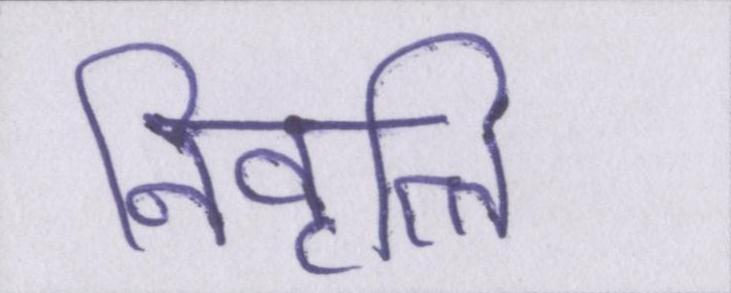 निवृत्ति